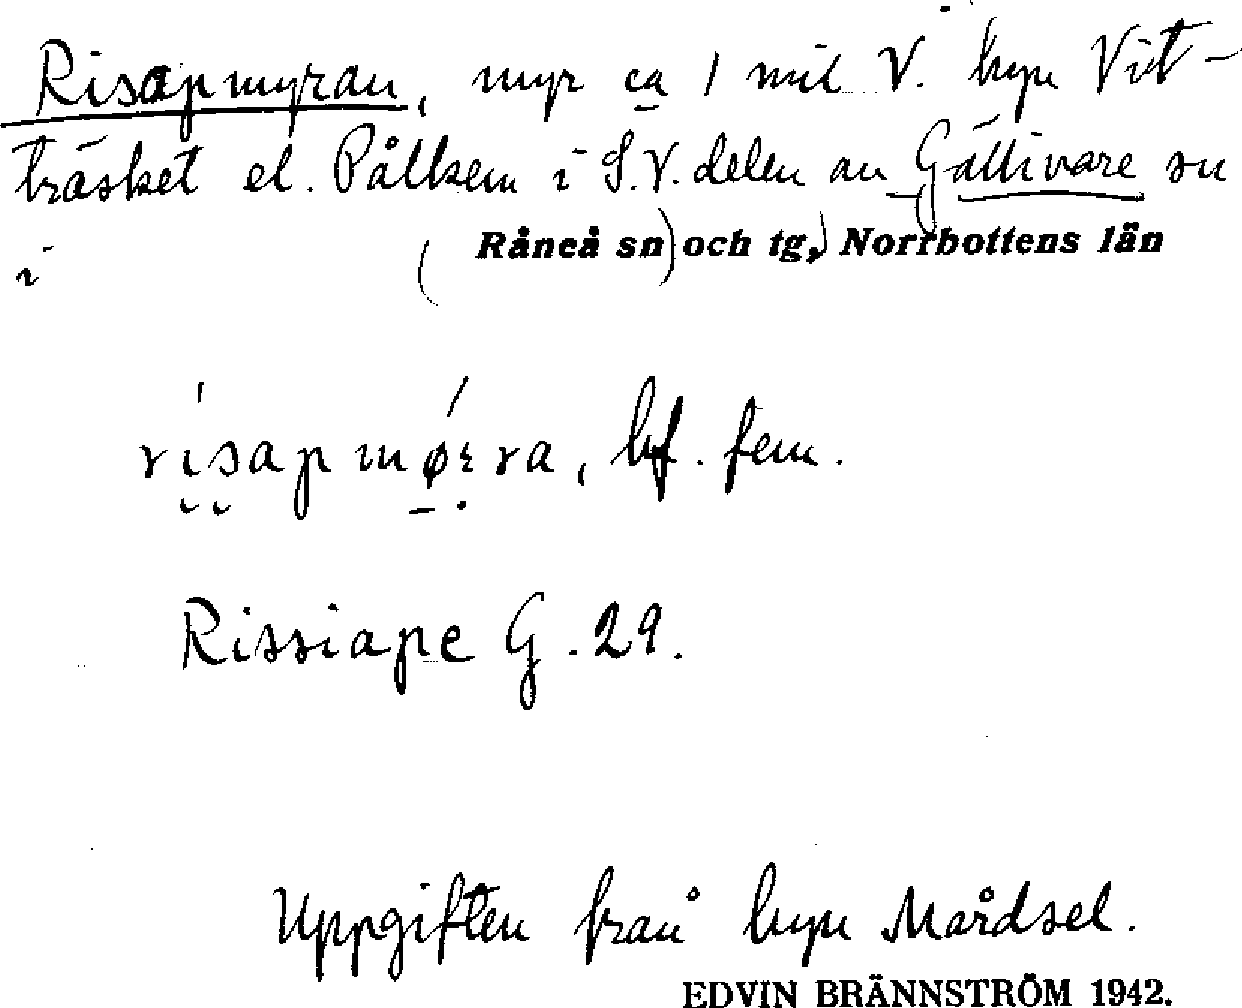 Risapmyran, myr ca 1 mil V. byn Vit-
träsket el. Pålkem i S.V. delen av Gällivare sn
i (Råneå sn) och tg, Norrbottens län
risapmø̱ːra, bf. fem.
Rissiape G. 29.
Uppgiften från byn Mårdsel.
EDVIN BRÄNNSTRÖM 1942.